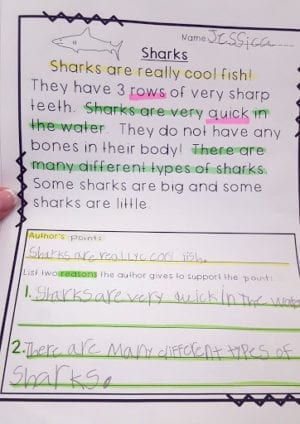 Name Jessica
Sharks
Sharks are really cool fish!
They have 3 rows of very sharp
teeth. Sharks are very quick in
the water. They do not have any
bones in their body! There are
many different types of sharks.
Some sharks are big and some
sharks are little.
Author's point:
Sharks are really cool fish.
List two reasons the author gives to support the point:
1. Sharks are very quick in the water
2. There are many different types of
Sharks.